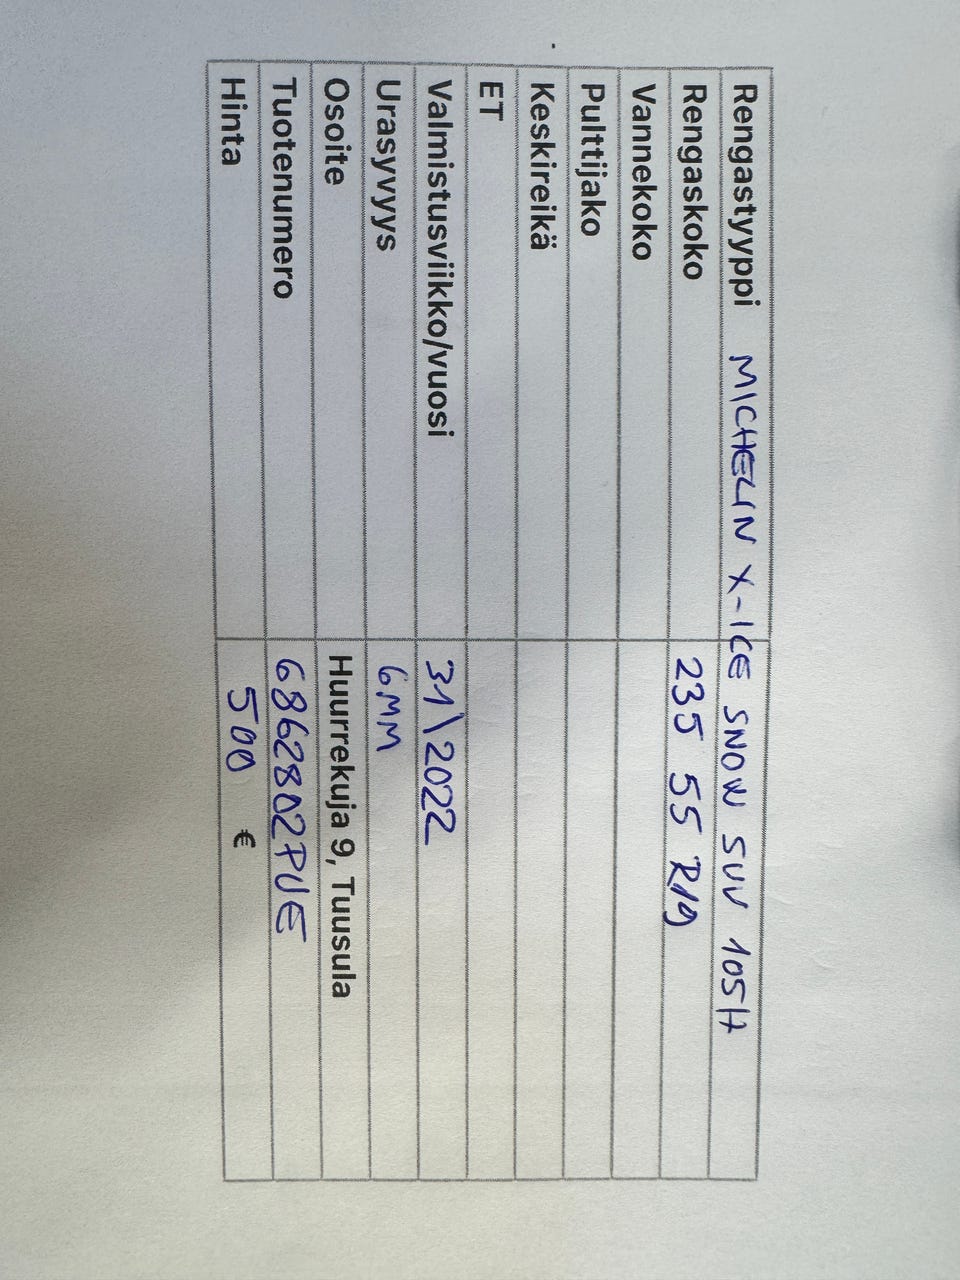 Rengastyyppi MICHELIN X-ICE SNOW SUV 105H
Rengaskoko 235 55 R19
Vannekoko
Pulttijako
Keskireikä
ET
Valmistusviikko/vuosi 31\2022
Urasyvyys 6MM
Osoite Huurrekuja 9, Tuusula
Tuotenumero 6862802PUE
Hinta 500 €